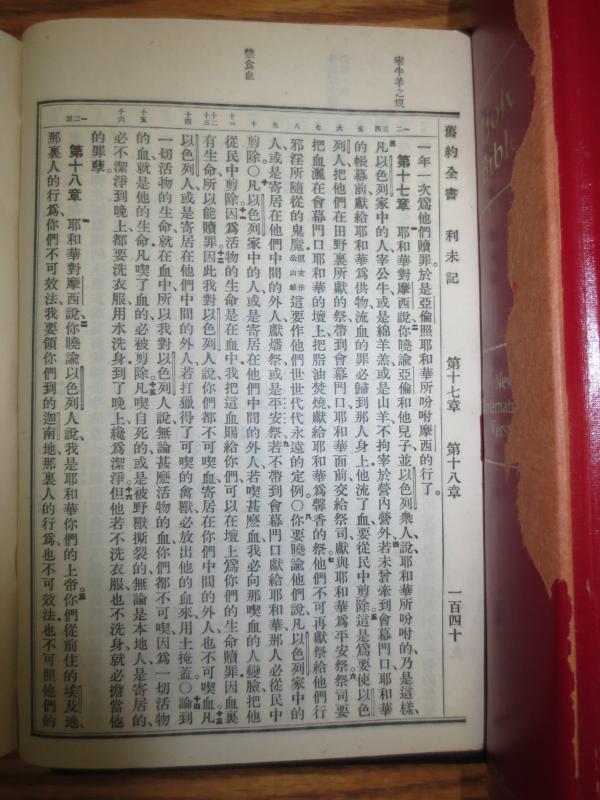 宰牛羊之規
禁食血
舊約全書 利未記 第十七章 第十八章 一百四十
一年一次爲他們贖罪於是亞倫照耶和華所吩咐摩西的行了。
第十七章 耶和華對摩西說你曉諭亞倫和他兒子並以色列衆人說耶和華所吩咐的乃是這樣、
凡以色列家中的人宰公牛或是綿羊羔或是山羊不拘宰於營內營外若未曾牽到會幕門口耶和華
的帳幕前獻給耶和華爲供物流血的罪必歸到那人身上他流了血要從民中剪除這是爲要使以色
列人把他們在田野裏所獻的祭帶到會幕門口耶和華面前交給祭司獻與耶和華爲平安祭祭司要
把血灑在會幕門口耶和華的壇上把脂油焚燒獻給耶和華爲馨香的祭他們不可再獻祭給他們行
邪淫所隨從的鬼魔原文作公山羊這要作他們世世代代永遠的定例○你要曉諭他們說凡以色列家中的
人或是寄居在他們中間的外人獻燔祭或是平安祭若不帶到會幕門口獻給耶和華那人必從民中
剪除○凡以色列家中的人或是寄居在他們中間的外人若喫甚麼血我必向那喫血的人變臉把他
從民中剪除因爲活物的生命是在血中我把這血賜給你們可以在壇上爲你們的生命贖罪因血裏
有生命所以能贖罪因此我對以色列人說你們都不可喫血寄居在你們中間的外人也不可喫血凡
以色列人或是寄居在他們中間的外人若打獵得了可喫的禽獸必放出他的血來用土掩蓋○論到
一切活物的生命就在血中所以我對以色列人說無論甚麼活物的血你們都不可喫因爲一切活物
的血就是他的生命凡喫了血的必被剪除凡喫自死的或是被野獸撕裂的無論是本地人是寄居的、
必不潔淨到晚上都要洗衣服用水洗身到了晚上纔爲潔淨但他若不洗衣服也不洗身就必擔當他
的罪孽。
第十八章 耶和華對摩西說你曉諭以色列人說我是耶和華你們的上帝你們從前住的埃及地、
那裏人的行爲你們不可效法我要領你們到的迦南地那裏人的行爲也不可效法也不可照他們的
Holy
Bible
New
International
Version